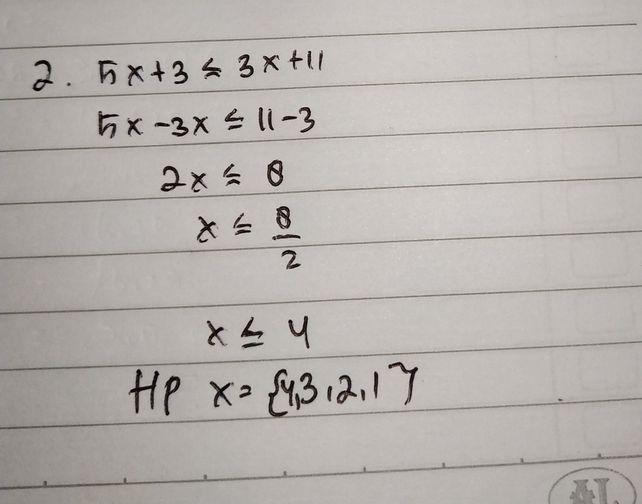 2. 5x+3 ≤ 3x+11
5x-3x ≤ 11-3
2x ≤ 8
x ≤ 8/2
x ≤ 4
HP x = {4,3,2,1}
AL